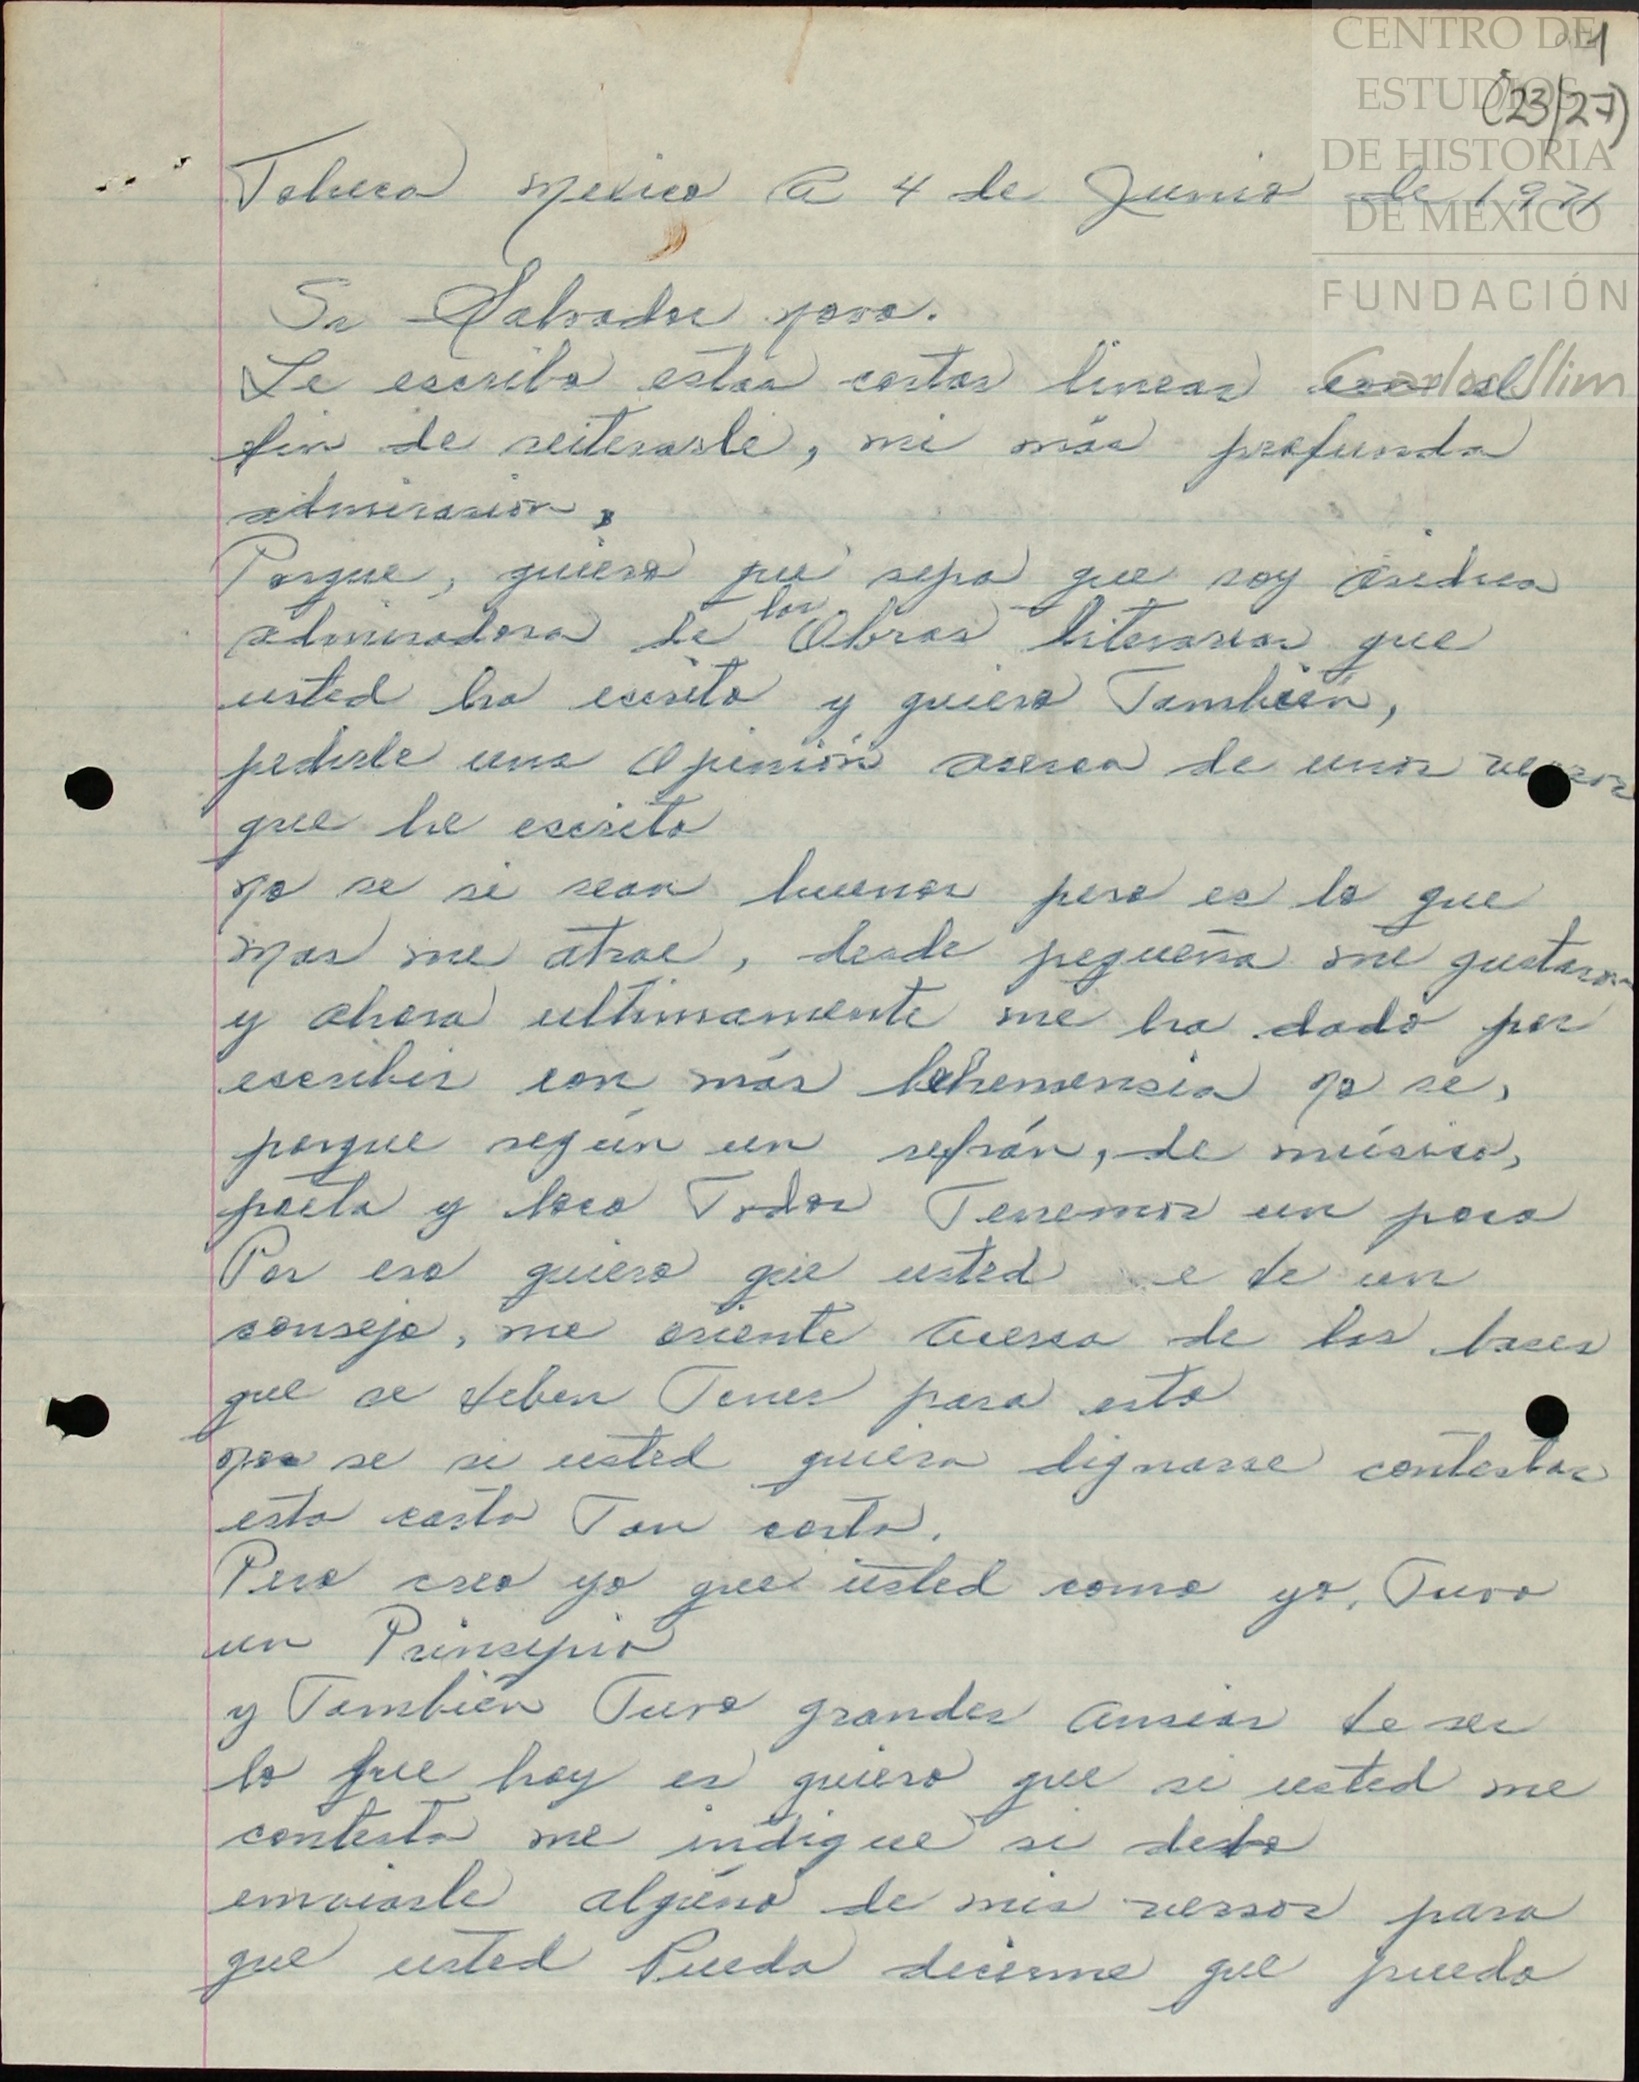 CENTRO DE
ESTUDIOS
DE HISTORIA
DE MEXICO
FUNDACIÓN
Carlos Slim
(23/27)
Toluca Mexico A 4 de Junio de 1971
Sr Salvador novo.
Le escribo estas cortas lineas con el
fin de reiterarle, mi más profunda
admirasión.
Porque, quiero que sepa que soy asidua
admiradora de las Obras literarias que
usted ha escrito y quiero También,
pedirle una Opinión acerca de unos versos
que he escrito
No se si sean buenos pero es lo que
mas me atrae, desde pequeña me gustaron
y ahora ultimamente me ha dado por
escribir con más behemensia No se,
porque según un refrán, de músico,
poeta y loco Todos Tenemos un poco
Por eso quiero que usted e de un
consejo, me oriente acerca de las bases
que se deben Tener para esto
no se si usted quiera dignarse contestar
esta carta Tan corta.
Pero creo yo que usted como yo, Tuvo
un Prinsipio
y También Tuvo grandes ansias de ser
lo que hoy es quiero que si usted me
contesta me indique si debo
enviarle alguno de mis versos para
que usted Pueda decirme que puedo